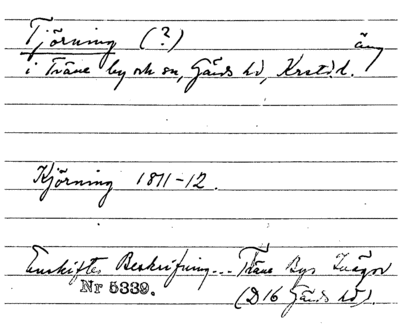 Tjörning (?) äng
i Träne by och sn, Gärds hd, Krstd. l.
Kjörning 1811-12.
Enskiftes Beskrifning... Träne Bys Inägor
Nr 5339. (D16 Gärds hd).